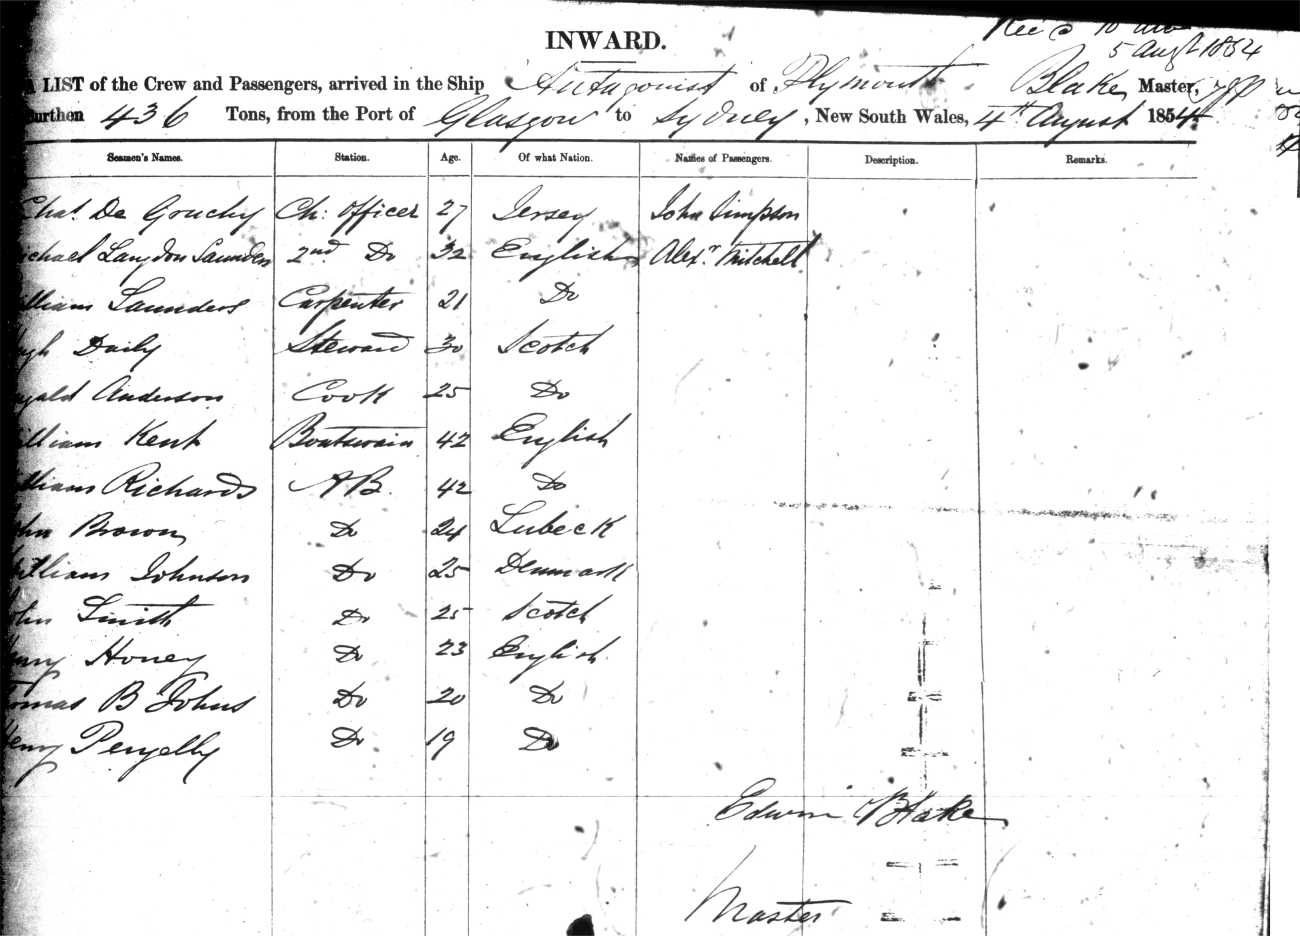 INWARD.
5 Augt 1854
A LIST of the Crew and Passengers, arrived in the Ship Antagonist of Plymouth Blake Master,
Burthen 436 Tons, from the Port of Glasgow to Sydney, New South Wales, 4th August 1854
Seamen's Names. Station. Age. Of what Nation. Names of Passengers. Description. Remarks.
Chas. De Gruchy Ch: Officer 27 Jersey John Simpson
ichael Langdon Saunders 2nd Do 32 English Alexr. Mitchell
illiam Saunders Carpenter 21 Do
ugh Daily Steward 30 Scotch
ugald Anderson Cook 25 Do
illiam Kent Boatswain 42 English
illiam Richards AB. 42 Do
ohn Brown Do 24 Lubeck
William Johnson Do 25 Denmark
John Smith Do 25 Scotch
enry Honey Do 23 English.
homas B Johns Do 20 Do
Henry Pengelly Do 19 Do
Edwin Blake
Master